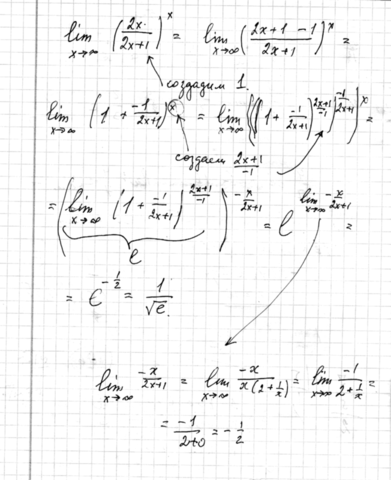 lim x→∞ (2x/(2x+1))^x = lim x→∞ ((2x+1-1)/(2x+1))^x =
создадим 1.
lim x→∞ (1 + -1/(2x+1))^x = lim x→∞ (((1 + -1/(2x+1))^((2x+1)/-1))^(-1/(2x+1)))^x =
создаем (2x+1)/-1
= (lim x→∞ (1 + -1/(2x+1))^((2x+1)/-1))^(-x/(2x+1)) = e^(lim x→∞ -x/(2x+1)) =
e
= e^(-1/2) = 1/√e.
lim x→∞ -x/(2x+1) = lim x→∞ -x/(x(2+1/x)) = lim x→∞ -1/(2+1/x) =
= -1/(2+0) = -1/2